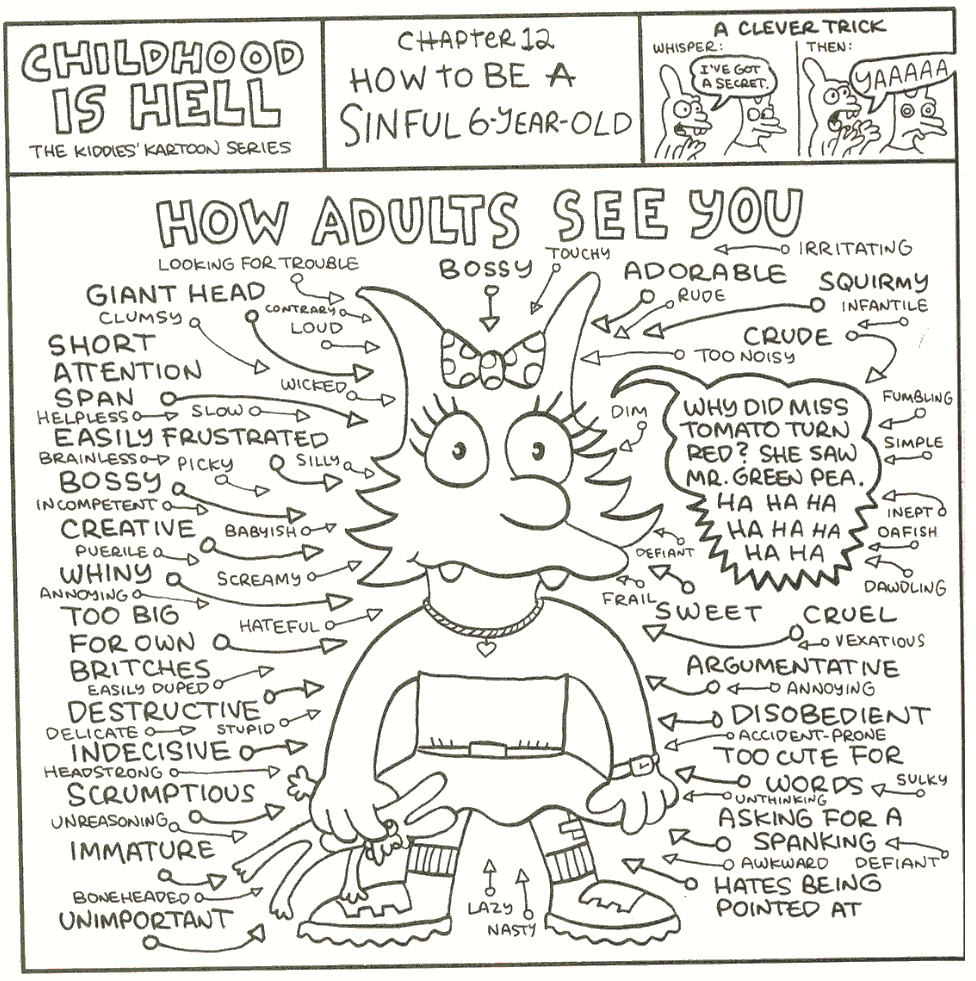 CHILDHOOD
IS HELL
THE KIDDIES' KARTOON SERIES
CHAPTER 12
HOW TO BE A
SINFUL 6-YEAR-OLD
A CLEVER TRICK
WHISPER:
I'VE GOT
A SECRET.
THEN:
YAAAAA
HOW ADULTS SEE YOU
LOOKING FOR TROUBLE
GIANT HEAD
CONTRARY
CLUMSY
LOUD
SHORT
ATTENTION
SPAN
WICKED
HELPLESS
SLOW
EASILY FRUSTRATED
BRAINLESS
PICKY
SILLY
BOSSY
INCOMPETENT
CREATIVE
BABYISH
PUERILE
WHINY
SCREAMY
ANNOYING
TOO BIG
FOR OWN
BRITCHES
HATEFUL
EASILY DUPED
DESTRUCTIVE
DELICATE
STUPID
INDECISIVE
HEADSTRONG
SCRUMPTIOUS
UNREASONING
IMMATURE
BONEHEADED
UNIMPORTANT
BOSSY
TOUCHY
IRRITATING
ADORABLE
RUDE
SQUIRMY
INFANTILE
CRUDE
TOO NOISY
DIM
WHY DID MISS
TOMATO TURN
RED? SHE SAW
MR. GREEN PEA.
HA HA HA
HA HA HA
HA HA
FUMBLING
SIMPLE
INEPT
OAFISH
DAWDLING
DEFIANT
FRAIL
SWEET
CRUEL
VEXATIOUS
ARGUMENTATIVE
ANNOYING
DISOBEDIENT
ACCIDENT-PRONE
TOO CUTE FOR
WORDS
SULKY
UNTHINKING
ASKING FOR A
SPANKING
AWKWARD
DEFIANT
HATES BEING
POINTED AT
LAZY
NASTY